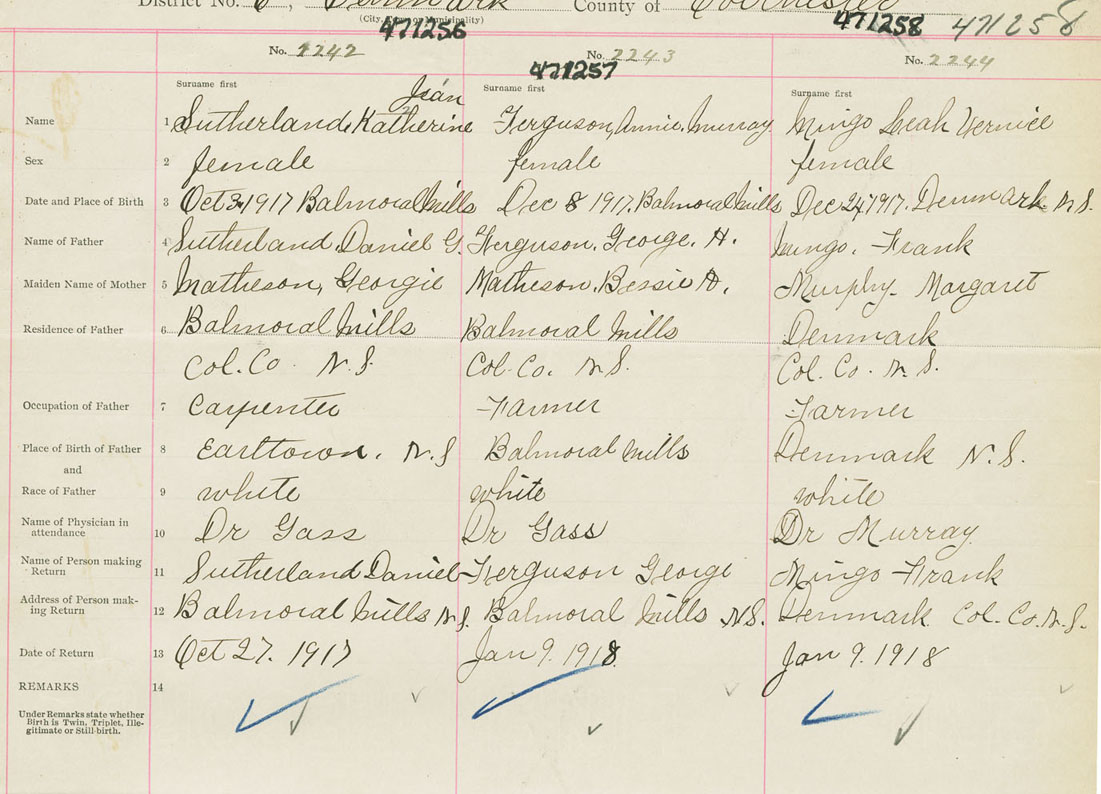 District No. 6, Denmark County of Colchester
(City, Town or Municipality)
471256 471258 471258
No. 2242 No. 2243 No. 2244
471257
Surname first Surname first Surname first
Jean
Name 1 Sutherland, Katherine Ferguson, Annie. Murray Mingo Leah Vernice
Sex 2 female female female
Date and Place of Birth 3 Oct 3 1917 Balmoral Mills Dec 8 1917. Balmoral Mills Dec 24 1917. Denmark N.S.
Name of Father 4 Sutherland. Daniel G. Ferguson. George. H. Mingo. Frank
Maiden Name of Mother 5 Matheson, Georgie Matheson. Bessie A. Murphy. Margaret
Residence of Father 6 Balmoral Mills Balmoral Mills Denmark
Col. Co. N.S. Col. Co. N.S. Col. Co. N.S.
Occupation of Father 7 Carpenter Farmer Farmer
Place of Birth of Father 8 Earltown. N.S Balmoral Mills Denmark N.S.
and
Race of Father 9 white white white
Name of Physician in
attendance 10 Dr Gass Dr Gass Dr Murray
Name of Person making
Return 11 Sutherland Daniel Ferguson George Mingo Frank
Address of Person mak-
ing Return 12 Balmoral Mills N.S. Balmoral Mills N.S. Denmark Col. Co. N.S.
Date of Return 13 Oct 27. 1917 Jan 9. 1918 Jan 9. 1918
REMARKS 14
Under Remarks state whether
Birth is Twin, Triplet, Ille-
gitimate or Still-birth.